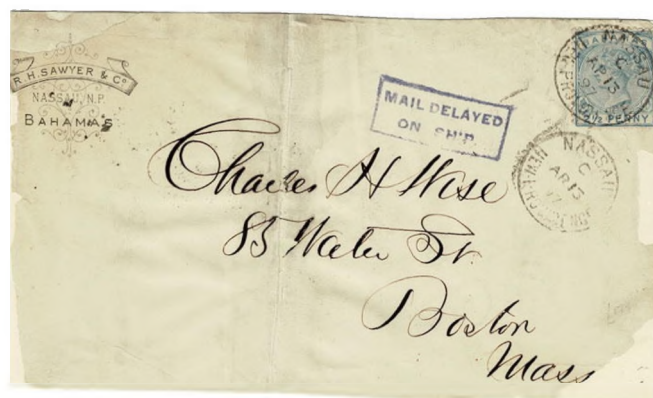 R. H. SAWYER & Co
NASSAU, N.P.
BAHAMAS
MAIL DELAYED
ON SHIP
NASSAU
C
AP 13
97
NEW-PROVIDENCE
PENNY
NASSAU
C
AP 13
97
NEW-PROVIDENCE
Charles H Wise
85 Water St
Boston
Mass